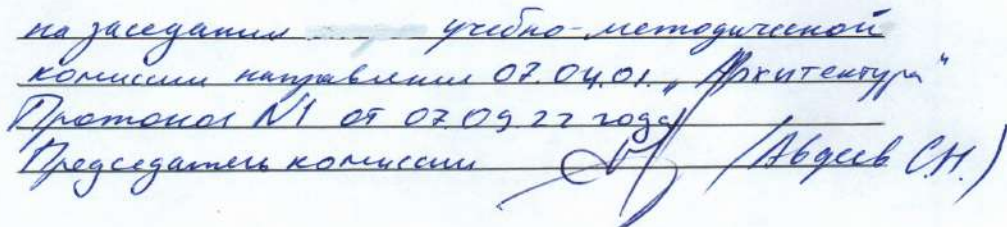 на заседании учебно-методической
комиссии направления 07.04.01. „Архитектура“
Протокол №1 от 07.09.22 года
Председатель комиссии /Авдеев С.Н./